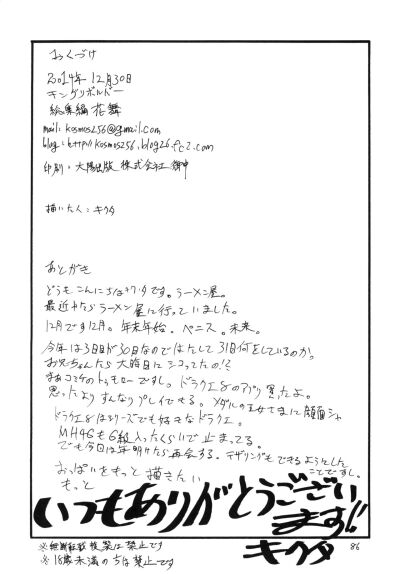 おくづけ
2014年12月30日
キングリボルバー
総集編 花舞
mail: kosmos256@gmail.com
blog: http//kosmos256.blog26.fc2.com
印刷: 大陽出版 株式会社 御中
描いた人: キクタ
あとがき
どうもこんにちはキクタです。ラーメン屋。
最近わたらラーメン屋に行っていました。
12月です12月。年末年始。ペニス。未来。
今年は3日目が30日なのではたして31日何をしているのか。
お兄ちゃんたら大晦日にシコってたの!?
まあコミケのトゥモローですし。ドラクエ8のアプリ買たよ。
思ったよりすんなりプレイできる。メダルの王女さまに顔面シャ
ドラクエ8はシリーズでも好きなドラクエ。
MH4GもG級入ったくらいで止まってる。
でも今日は年明けたら再会する。テザリングもできるようにした
ことですし。
おっぱいをもっと描きたい
もっと
いつもありがとうござい
ます!!
キクタ
※無断転載 複製は禁止です
※18歳未満の 禁止です
86